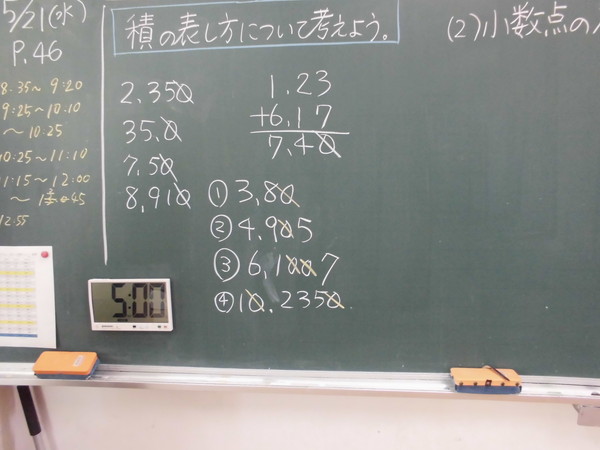 5/21(水)
P.46
8:35～9:20
9:25～10:10
～10:25
10:25～11:10
11:15～12:00
12:55
積の表し方について考えよう。
(2)小数点の
2.350
35.0
7.50
8.910
1.23
+6.17
7.40
① 3.80
② 4.905
③ 6.1007
④ 10.2350
5:00